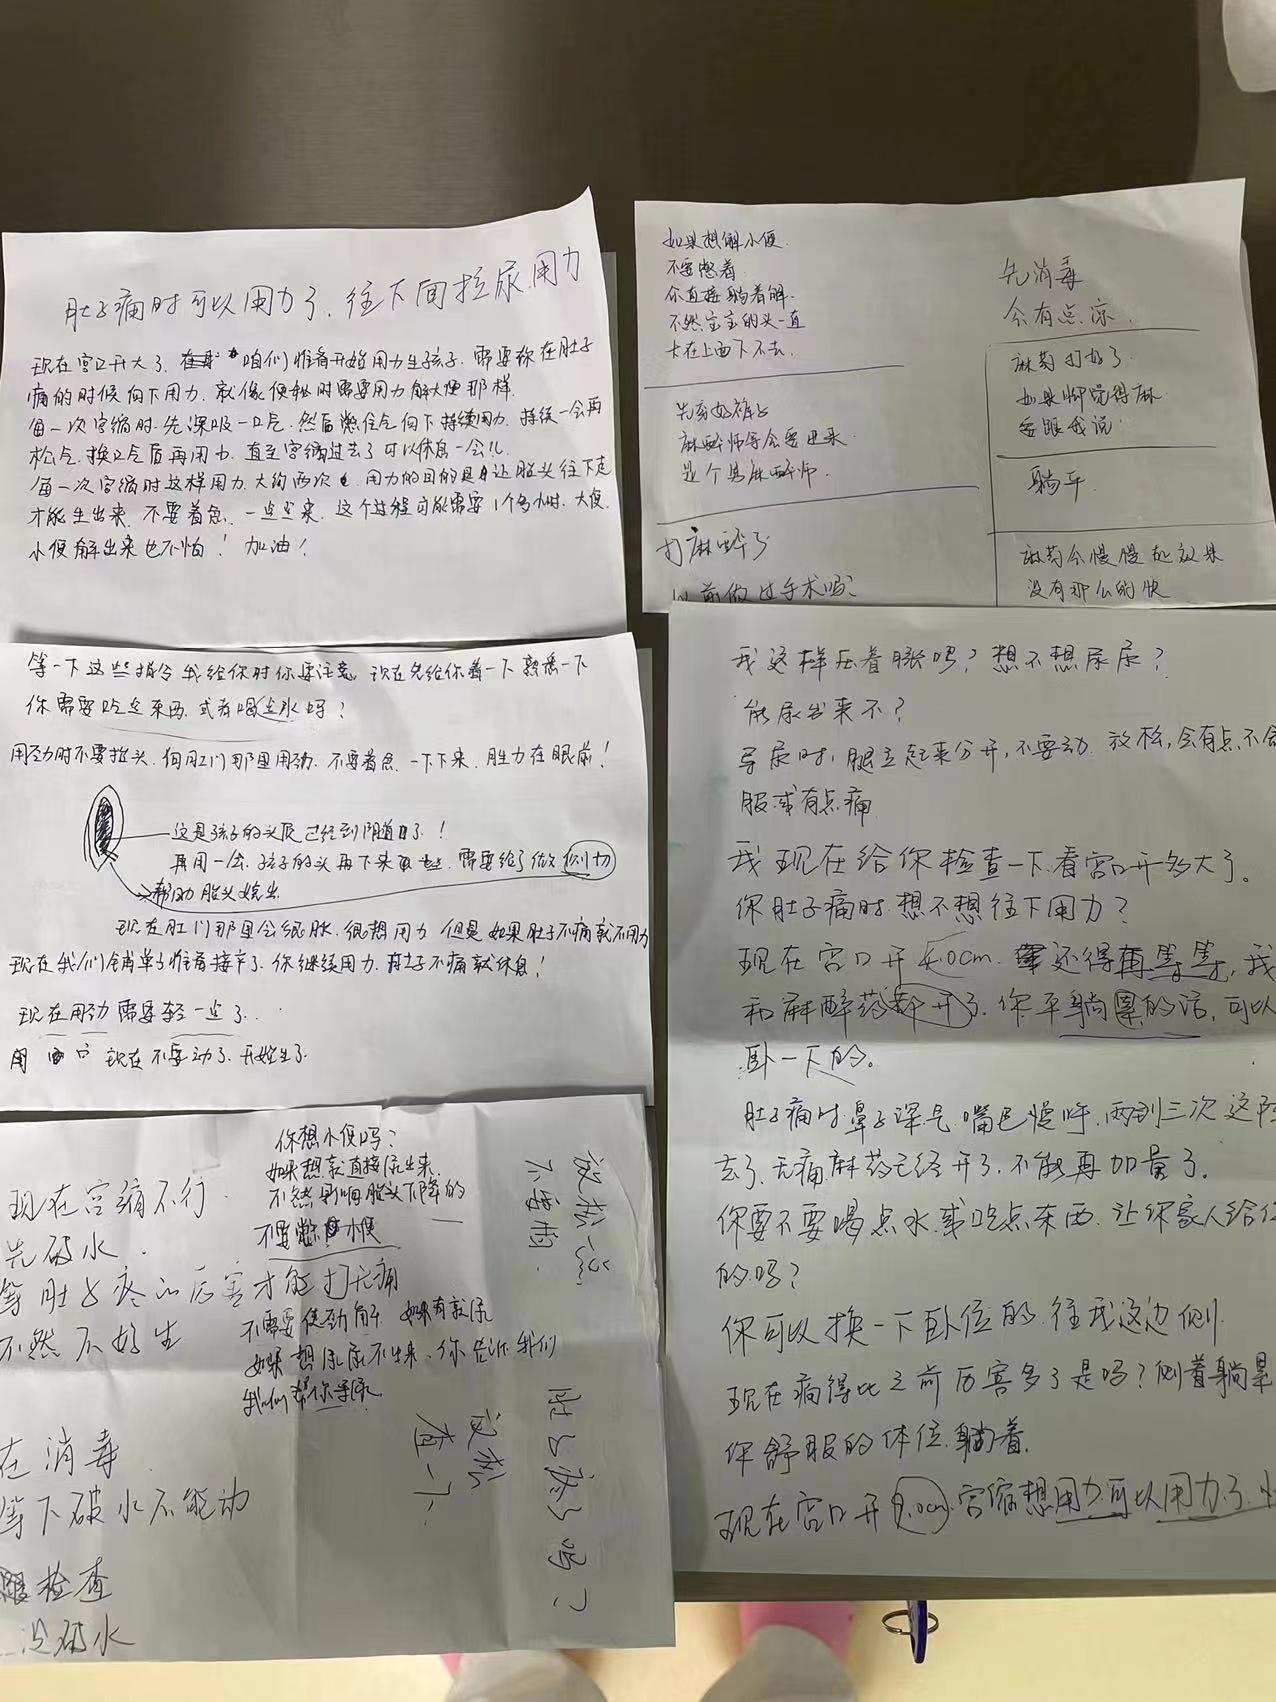 肚子痛时可以用力了，往下面拉尿用力
现在宫口开大了，咱们准备开始用力生孩子，需要你在肚子
痛的时候向下用力，就像便秘时需要用力解大便那样，
每一次宫缩时，先深吸一口气，然后憋住气向下持续用力，持续一会再
松气，换口气后再用力，直至宫缩过去了可以休息一会儿，
每一次宫缩时这样用力，大约两次，用力的目的是让胎头往下走
才能生出来，不要着急，一点点来，这个过程可能需要1个多小时，大便
小便解出来也不怕！加油！
如果想解小便
不要憋着
你直接躺着解
不然宝宝的头一直
卡在上面下不去
先穿好裤子
麻醉师等会要进来
是个男麻醉师
打麻醉了
以前做过手术吗？
先消毒
会有点凉
麻药打好了
如果脚觉得麻
要跟我说
躺平
麻药会慢慢起效果
没有那么的快
等一下这些指令我给你时你要注意，现在先给你看一下熟悉一下
你需要吃点东西，或者喝点水吗？
用劲时不要抬头，向肛门那里用劲，不要着急，一下下来，胜利在眼前！
这是孩子的头发已经到阴道口了！
再用一会，孩子的头再下来，需要给你做侧切
帮助胎头娩出
现在肛门那里会很胀，很想用力，但是如果肚子不痛就不用力
现在我们铺单子准备接产了，你继续用力，肚子不痛就休息！
现在用劲需要轻一点了
用 口 现在不要动了，开始生了
我这样压着胀吗？想不想尿尿？
能尿出来不？
导尿时，腿立起来分开，不要动，放松，会有点不舒
服或有点痛
我现在给你检查一下，看宫口开多大了。
你肚子痛时，想不想往下用力？
现在宫口开 cm，还得再等等，我
和麻醉药都开了，你平躺累的话，可以
卧一下的。
肚子痛时鼻子深气，嘴巴慢呼，两到三次这阵
去了，无痛麻药已经开了，不能再加量了。
你要不要喝点水，或吃点东西，让你家人给你
的吗？
你可以换一下卧位的，往我这边侧
现在痛得比之前厉害多了是吗？侧着躺累
你舒服的体位躺着
现在宫口开 cm，宫缩想用力可以用力了
现在宫缩不行
先破水
等肚子疼的厉害才能打无痛
不然不好生
在消毒
等下破水不能动
检查
没破水
你想小便吗？
如果想就直接尿出来，
不然影响胎头下降的
不要憋小便
不需要使劲解，如果有就尿
如果想尿尿不出来，你告诉我们
我们帮你导尿
放松一点
不要怕
肚子疼了吗？
放松
查一下